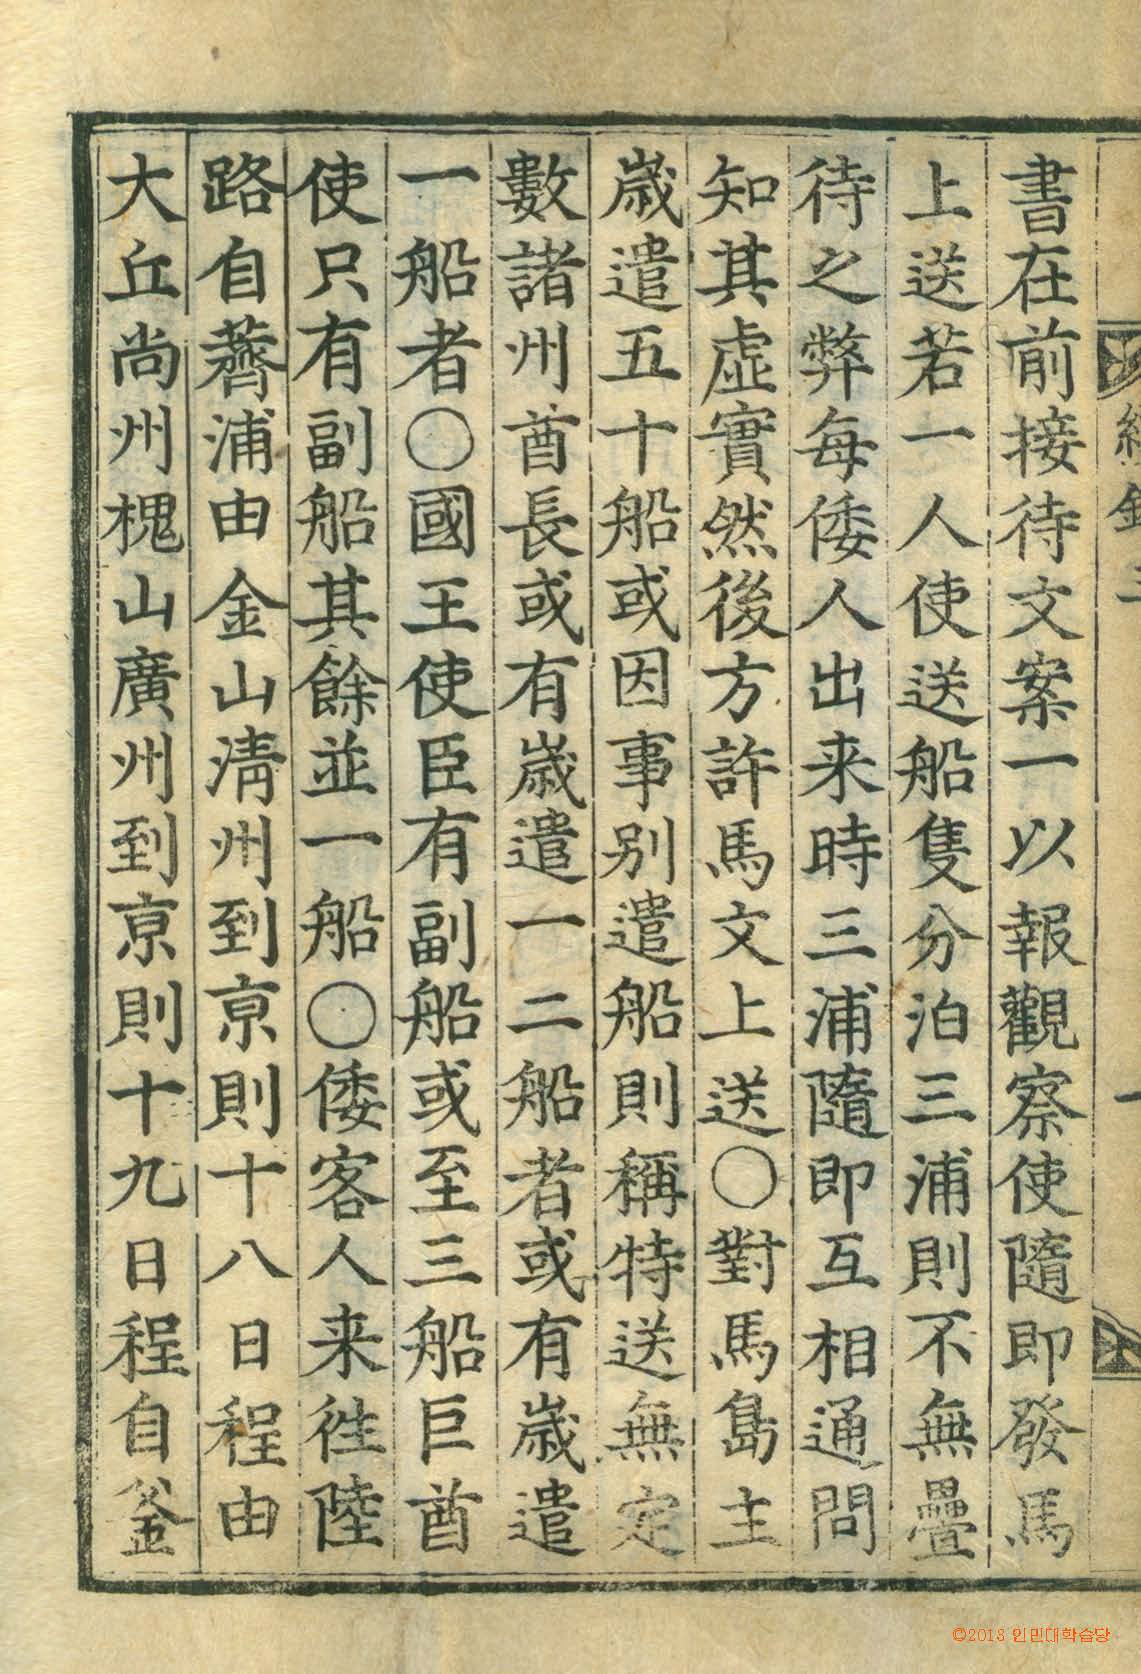 書在前接待文案一以報觀察使隨即發馬
上送若一人使送船隻分泊三浦則不無疊
待之弊每倭人出来時三浦隨即互相通問
知其虛實然後方許馬文上送〇對馬島主
歲遣五十船或因事别遣船則稱特送無定
數諸州酋長或有歲遣一二船者或有歲遣
一船者〇國王使臣有副船或至三船巨酋
使只有副船其餘並一船〇倭客人来徃陸
路自薺浦由金山淸州到亰則十八日程由
大丘尚州槐山廣州到亰則十九日程自釜
©2013 인민대학습당